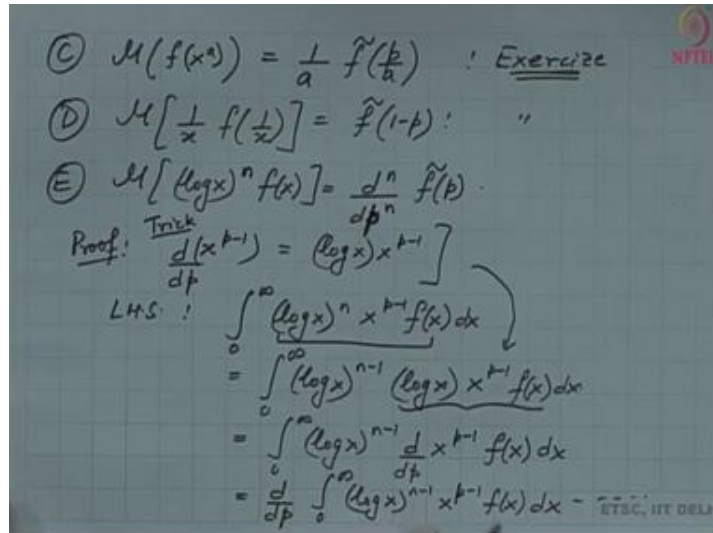 Ⓒ M(f(xᵃ)) = 1/a f̃(p/a) : Exercize
NPTEL
Ⓓ M[1/x f(1/x)] = f̃(1-p) : "
Ⓔ M[(logx)ⁿ f(x)] = dⁿ/dpⁿ f̃(p).
Trick
Proof: d/dp (x^{p-1}) = (logx) x^{p-1} ]
L.H.S. : ∫₀^∞ (logx)ⁿ x^{p-1} f(x) dx
= ∫₀^∞ (logx)^{n-1} (logx) x^{p-1} f(x) dx
= ∫₀^∞ (logx)^{n-1} d/dp x^{p-1} f(x) dx
= d/dp ∫₀^∞ (logx)^{n-1} x^{p-1} f(x) dx - - - - -
ETSC, IIT DELH